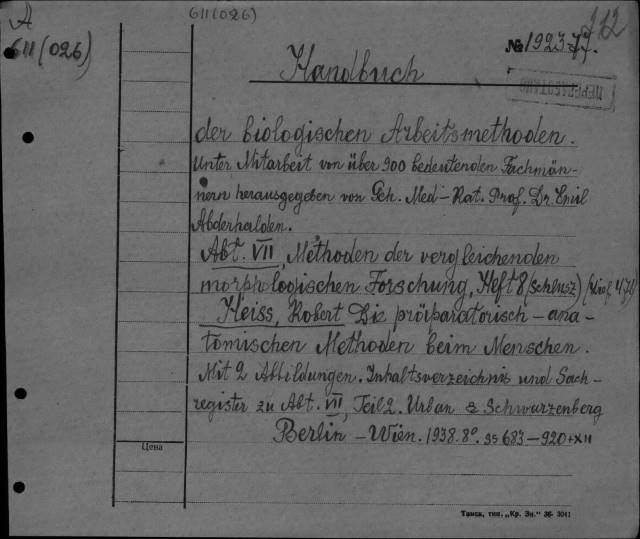 A
611 (026)
611 (026)
712
№ 192377.
Handbuch
der biologischen Arbeitsmethoden.
Unter Mitarbeit von über 900 bedeutenden Fachmän-
nern herausgegeben von Geh. Med-Rat. Prof. Dr. Emil
Abderhalden.
Abt. VII, Methoden der vergleichenden
morphologischen Forschung, Heft 8 (Schlusz) (Lief. 478)
Heiss, Robert Die präparatorisch-ana-
tomischen Methoden beim Menschen.
Mit 2 Abbildungen. Inhaltsverzeichnis und Sach-
register zu Abt. VII, Teil 2. Urban & Schwarzenberg
Berlin - Wien. 1938. 8°. ss 683-920+XII
Цена
Томск, тип. „Кр. Зн." 36- 3041